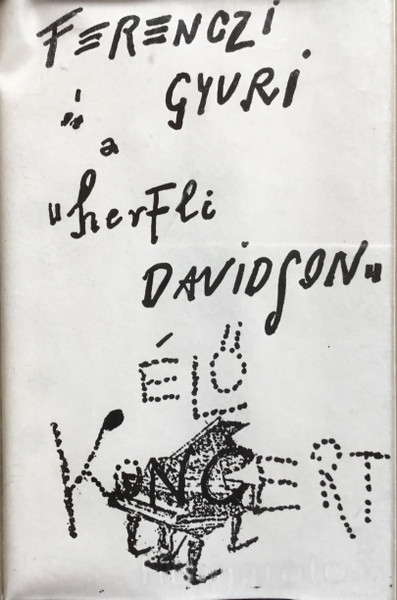 FERENCZI
GYURI
és
a
"herfli
DAVIDSON"
ÉLŐ
KONCERT